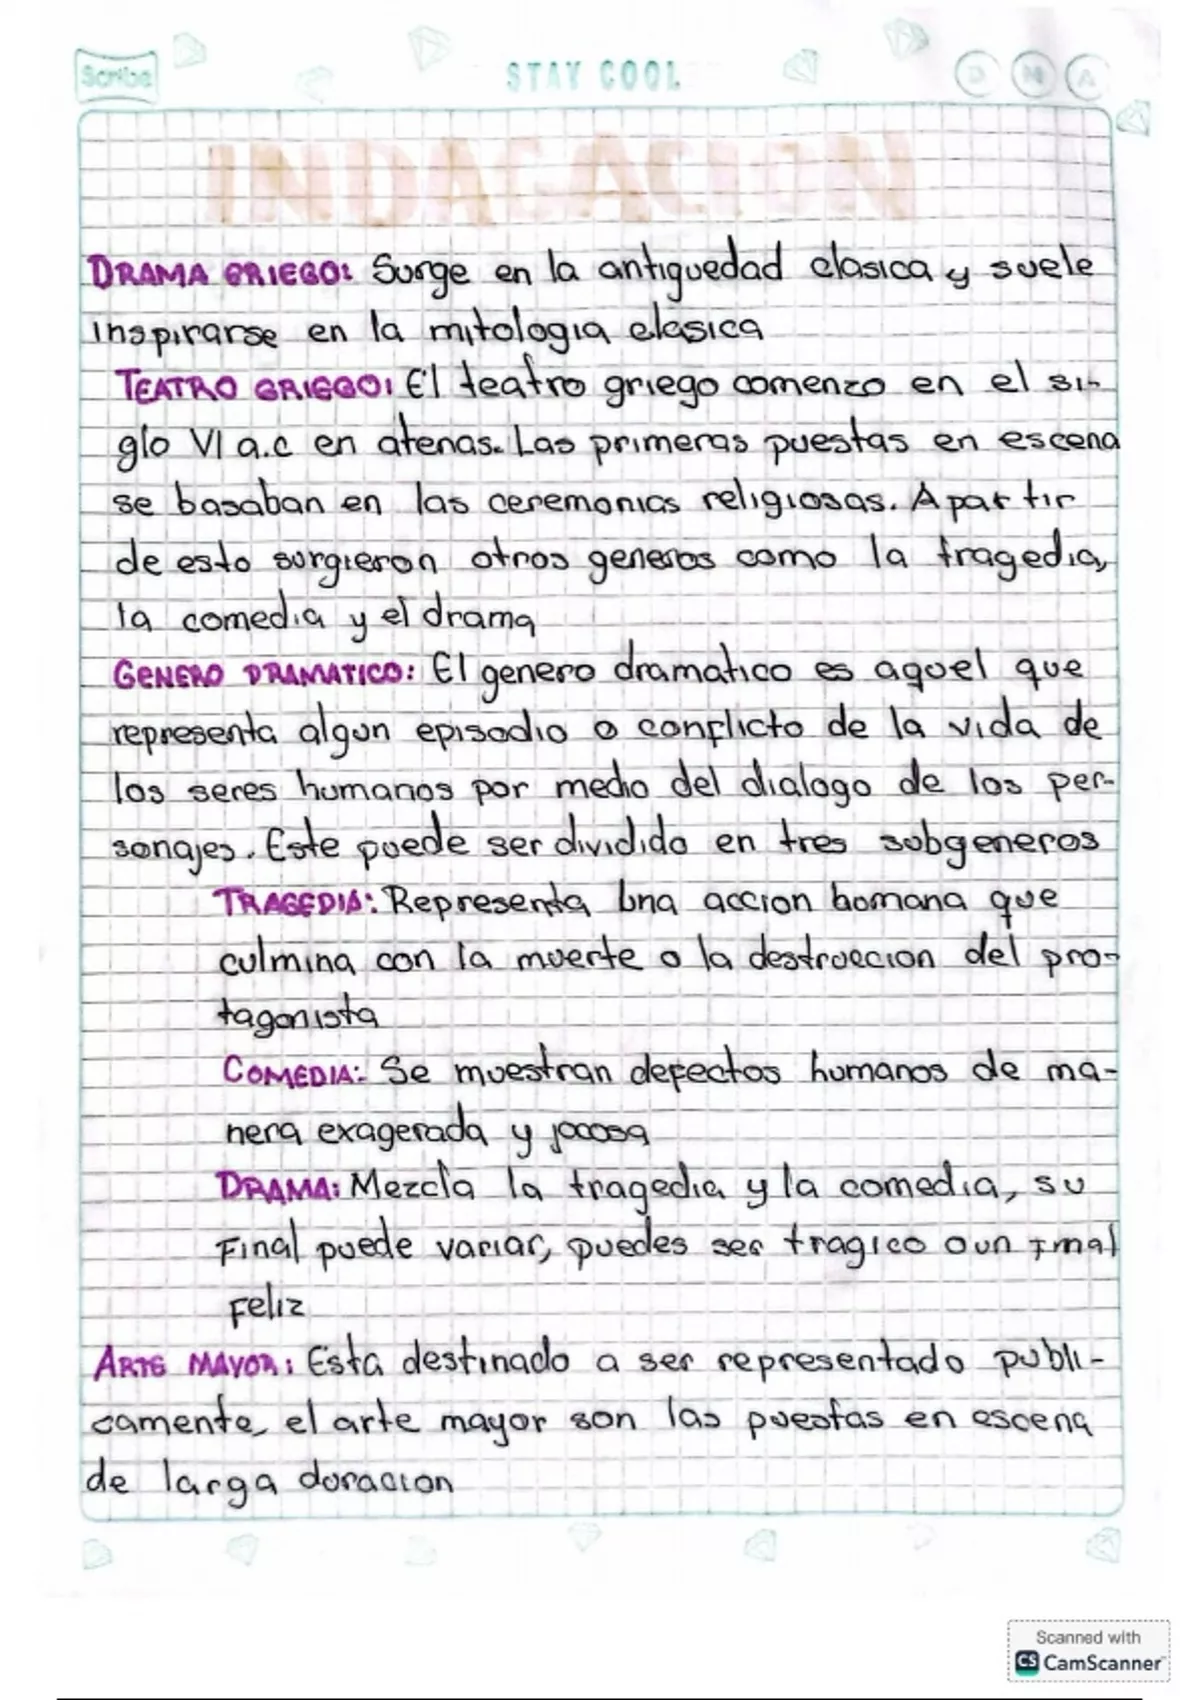 Scribe
STAY COOL
D N A
INDAGACION
DRAMA GRIEGO: Surge en la antiguedad clasica y suele
inspirarse en la mitologia clasica
TEATRO GRIEGO: El teatro griego comenzo en el si-
glo VI a.c en atenas. Las primeras puestas en escena
se basaban en las ceremonias religiosas. A partir
de esto surgieron otros generos como la tragedia,
la comedia y el drama
GENERO DRAMATICO: El genero dramatico es aquel que
representa algun episodio o conflicto de la vida de
los seres humanos por medio del dialogo de los per-
sonajes. Este puede ser dividido en tres subgeneros
TRAGEDIA: Representa una accion homana que
culmina con la muerte o la destruccion del pro-
tagonista
COMEDIA: Se muestran defectos humanos de ma-
nera exagerada y jocosa
DRAMA: Mezcla la tragedia y la comedia, su
Final puede variar, puedes ser tragico o un final
Feliz
ARTE MAYOR: Esta destinado a ser representado publi-
camente, el arte mayor son las puestas en escena
de larga duracion
Scanned with
CS CamScanner